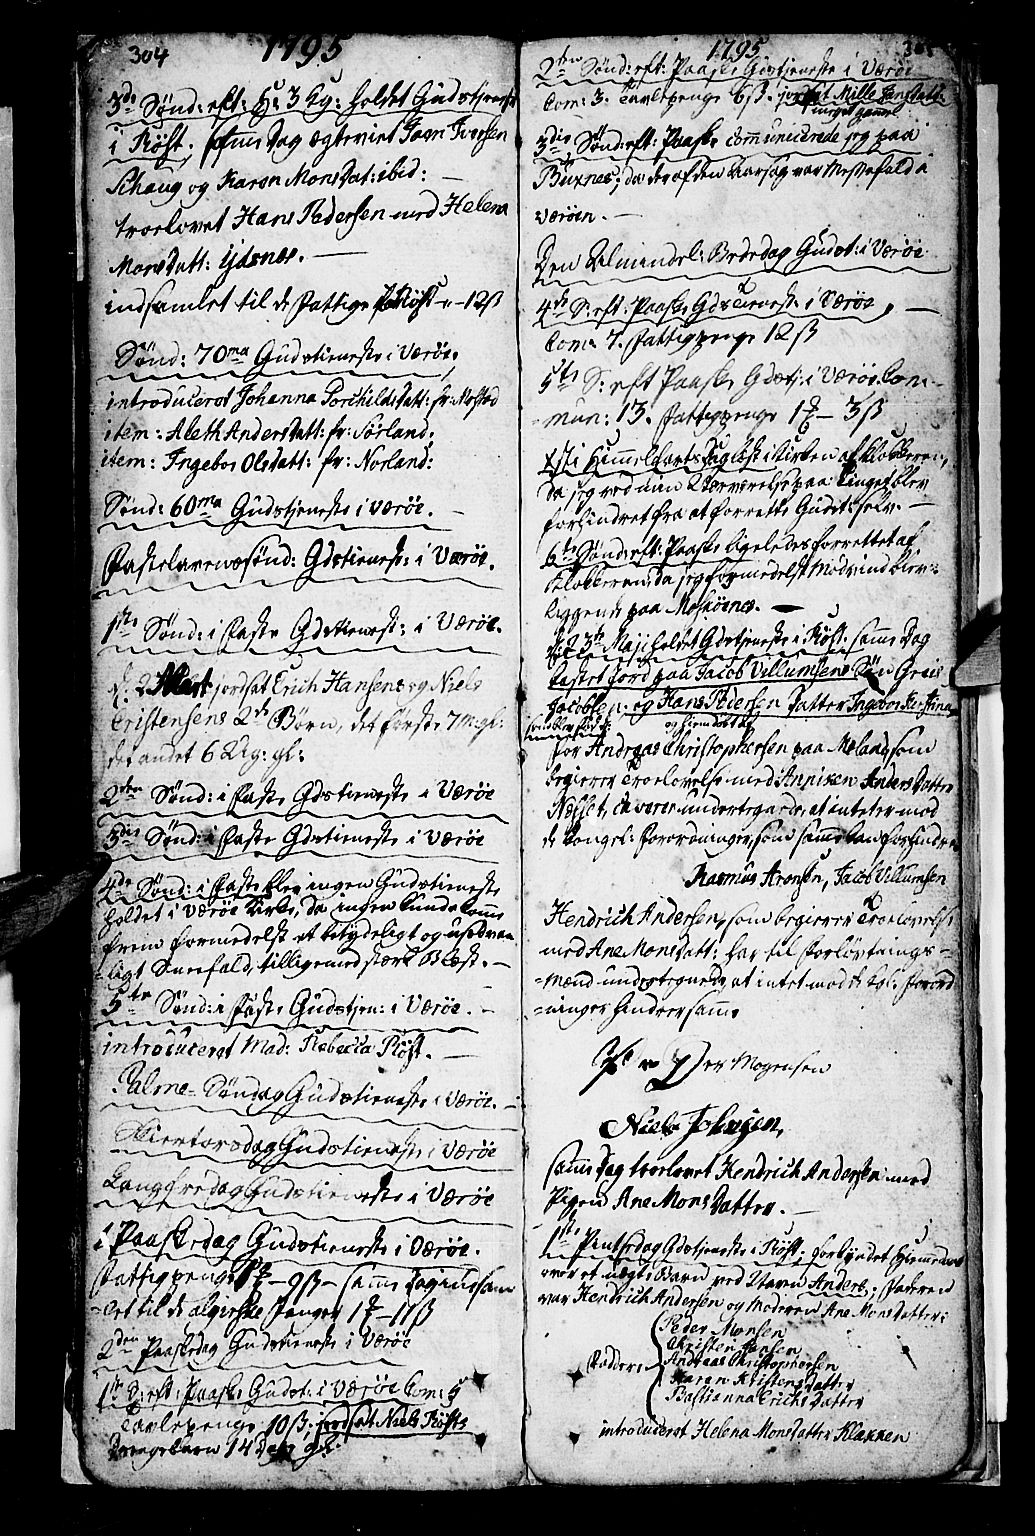 304
1795
3die Sønd: eft: H: 3 Kg: holdet Gudstjeneste
i Røst. samme Dag ægteviet Joen Iversen
Schaug og Karen Mons Dat: ibid: —
troelovet Hans Pedersen med Helena
Mons Datt: Ydsnes. —
indsamlet til de Fattige i Røst - 12 ß
Sønd: 70ma Gudstieneste i Værøe.
introduceret Johanna Torchilds Datt: fr: Mostad
item: Aleth Anders Datt: fr: Sørland:
item: Ingebor Ols Datt: fr: Norland:
Sønd: 60ma Gudstjeneste i Værøe. —
Fastelavens Sønd: Gdstieneste: i Værøe.
1ste Sønd: i Faste Gdstieneste: i Værøe.
d: 2 Mart jordsat Erich Hansens og Niels
Cristensens 2de Børn, det første 7 M: gl:
det andet 6 Ug: gl:
2den Sønd: i Faste Gdstieneste i Værøe
3die Sønd: i Faste Gdstieneste i Værøe
4de Sønd: i Faste blev ingen Gudstieneste
holdet i Værøe Kirke, da ingen kunde komme
frem formedelst et betydeligt og usædvan-
-ligt Sneefald, tilligemed stærk Blæst. —
5te Sønd: i Faste Gudstjen: i Værøe. —
introduceret Mad: Rebecca Røst. —
Palme-Søndag Gudstieneste i Værøe. —
Skiertorsdag Gudstieneste i Værøe
Langfredag Gudstieneste i Værøe
1 Paaskedag Gudstieneste i Værøe.
Fattigpenge - 9 ß - samme Dag indsam-
-let til de algierske Fanger 1 - 11 ß
2den Paaskedag Gudstieneste i Værøe
1ste S: eft: Paaske Gudst: i Værøe Com: 5
Tavlepenge 10 ß. jordsat Niels Røsts
Drengebarn 14 Dage gl:
1795
2den Sønd: eft: Paaske Gudstjeneste i Værøe
Com: 3. Tavlepenge 6 ß. jordsat Mille Jens Datt:
meget gammel
3die Sønd: eft: Paaske communicerede jeg paa
Buxnes, da der af den Aarsag var Messefald i
Værøen. —
Den Almindel: Bededag Gudst: i Værøe
4de S: eft: Paaske Gdstieneste i Værøe, —
Com: 7. Fattigpenge 12 ß
5te S: eft Paaske Gdstj: i Værøe Com-
-mun: 13. Fattigpenge 1 - 3 ß
Xsti Himmelfarts Dag læst i Kirken af Klokkeren,
da jeg ved min Nærværelse paa Tinget blev
forhindret fra at forrette Gudst: selv. —
6te Sønd: eft: Paaske ligeledes forrettet af
Klokkeren, da jeg formedelst Modvind blev
liggende paa Moskøenes. —
d: 23de Maj holdet Gdstjeneste i Røst. samme Dag
kastet Jord paa Jacob Villumsens Søn Greis
Jacobsen, og Hans Pedersen Datter Ingebor Kerstina
og hiemdøbt
for Andreas Christophersen paa som
begierer Troelovelse med Anniken Anders Datter
caverer undertegnede, at intet er mod
de kongel: Forordninger, som samme kan forhindre
Rasmus Aronsen, Jacob Villumsen
Hendrich Andersen, som begierer Troelovelse
med Ane Mons Datt: har til Forlovtnings-
-Mænd undertegnede, at intet mod de kgl: Forord-
-ninger hindrer samme
Per Mogensen
Niels Johnsen,
samme Dag troelovet Hendrich Andersen med
Pigen Ane Mons Datter. —
1ste Pintsedag Gdstjeneste i Røst. forkyndet Hjemmedaab
over et uægte Barn ved Navn Anders; Faderen
var Hendrich Andersen og Moderen Ane Mons Datter:
Faddere:
Peder Monsen
Christen Jensen
Andreas Christophersen
Karen Kristens Datter
Bastianna Erichs Datter
introduceret Helena Mons Datter Klakken